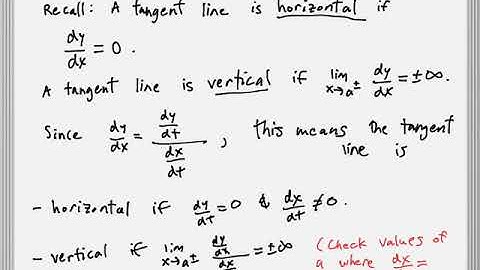 Recall: A tangent line is horizontal if
dy/dx = 0.
A tangent line is vertical if lim x→a± dy/dx = ±∞.
Since dy/dx = (dy/dt)/(dx/dt), this means the tangent
line is
- horizontal if dy/dt = 0 & dx/dt ≠ 0.
- vertical if lim x→a± (dy/dx)/(dx/dt) = ±∞ (Check values of
a where dx/dt =